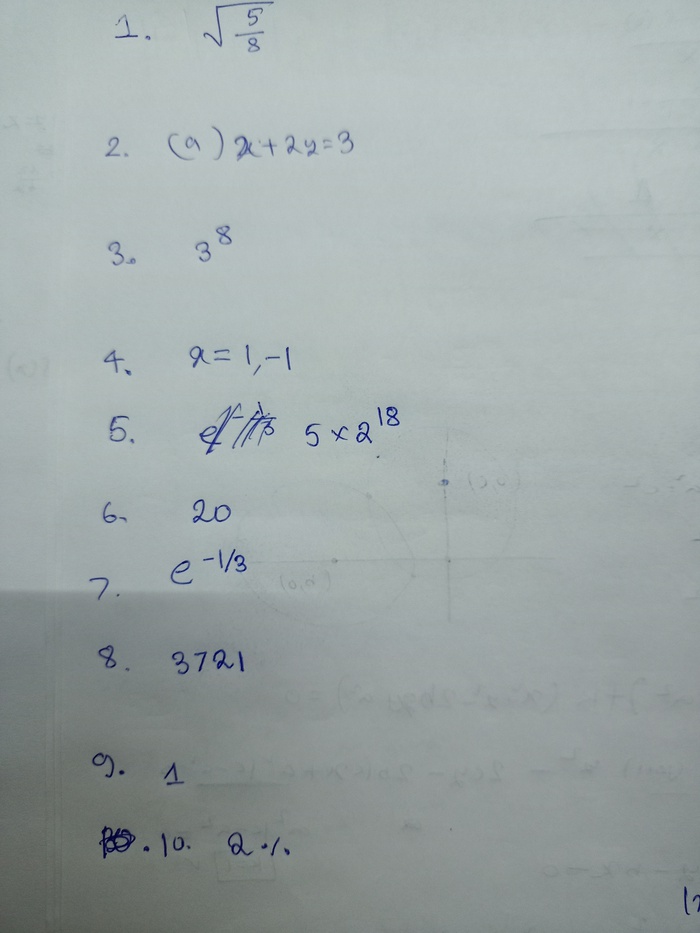 1. √(5/8)
2. (a) x+2y=3
3. 3^8
4. x=1,-1
5. 5×2^18
6. 20
7. e^-1/3
8. 3721
9. 1
10. 2%